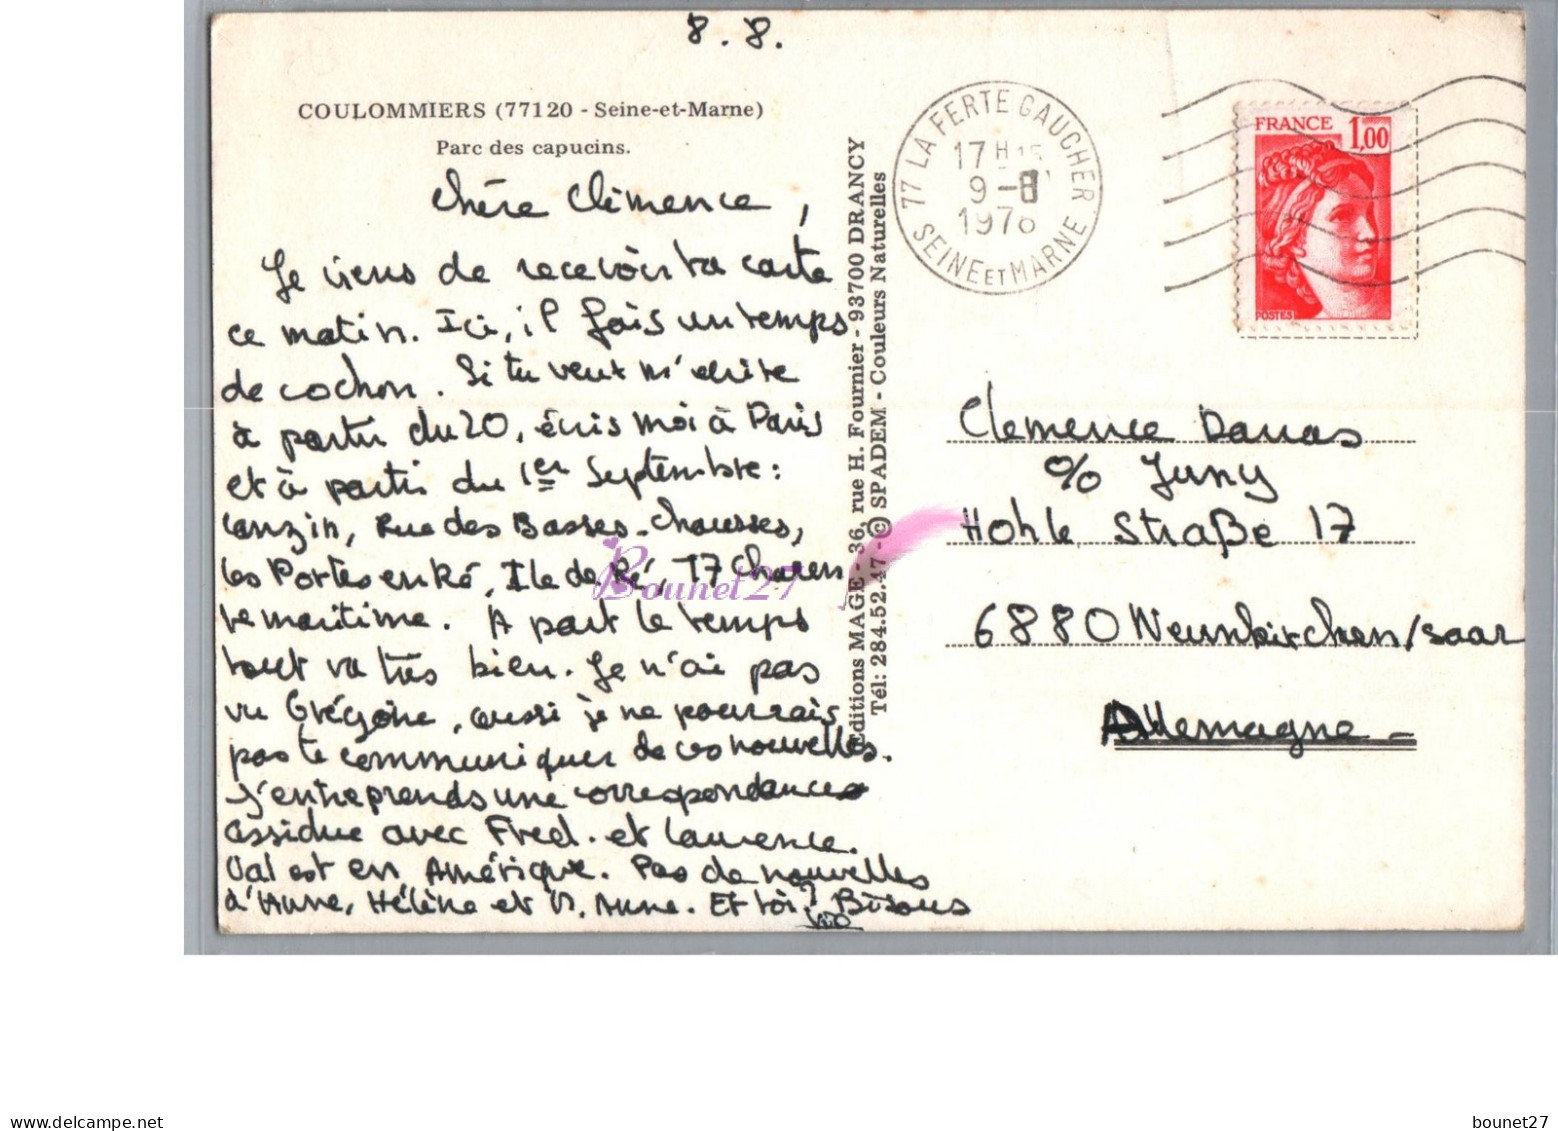 8.8.
COULOMMIERS (77120 - Seine-et-Marne)
Parc des capucins.
Chère Clémence,
Je viens de recevoir ta carte
ce matin. Ici, il fais un temps
de cochon. Si tu veux m'écrire
à partir du 20, écris moi à Paris
et à partir du 1er Septembre:
Canzin, Rue des Basses-Chausses,
Les Portes en Ré, Ile de Ré, 17 Charen
te maritime. A part le temps
tout va très bien. Je n'ai pas
vu Grégoire, aussi je ne pourrais
pas te communiquer de ces nouvelles.
J'entreprends une correspondance
assidue avec Fred. et Laurence.
Val est en Amérique. Pas de nouvelles
d'Anne, Hélène et M. Anne. Et toi? Bisous
Editions MAGE - 36, rue H. Fournier - 93700 DRANCY
Tél: 284.52.47 - © SPADEM - Couleurs Naturelles
77 LA FERTE GAUCHER
17 H 15
9 - 8
1978
SEINE ET MARNE
FRANCE 1,00
POSTES
Clemence
c/o Juny
Hohle Straße 17
6880 Neunkirchen/Saar
Allemagne -
Bounet27
bounet27